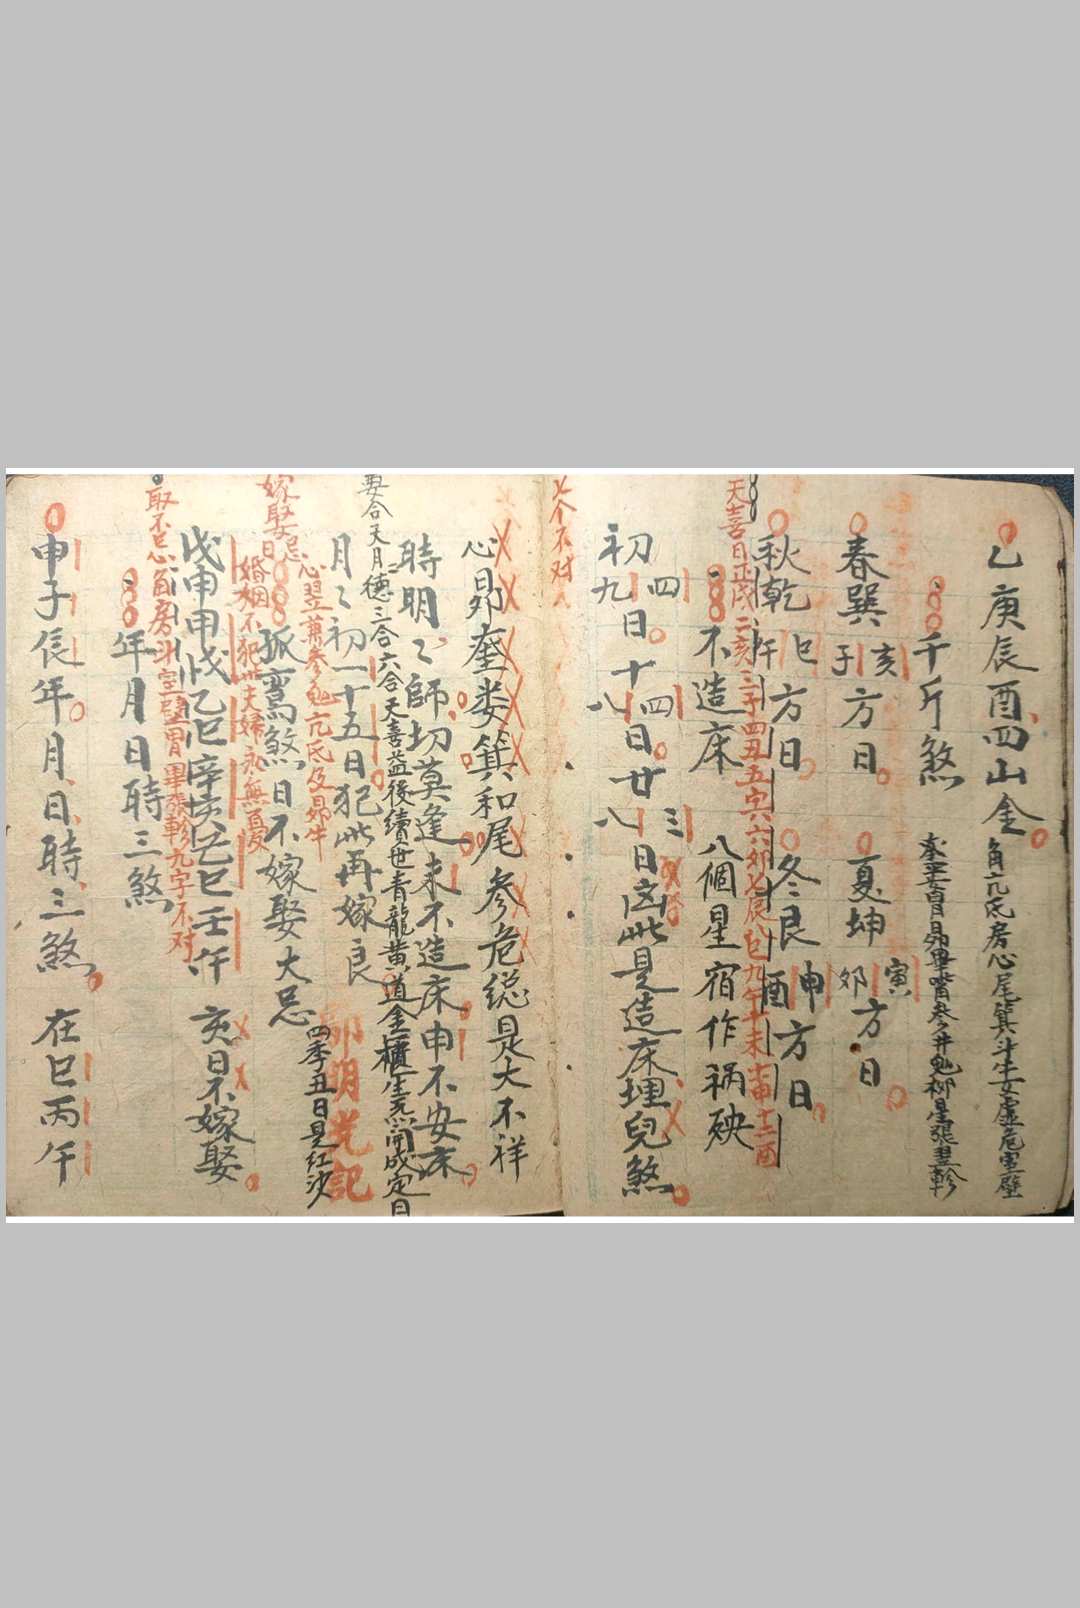 乙庚辰酉四山金
角亢氐房心尾箕斗牛女虛危室壁
奎婁胃昴畢嘴參井鬼柳星張翌軫
千斤煞
春巽亥子方日 夏坤寅卯方日
秋乾巳午方日 冬艮申酉方日
天喜日正戌二亥三子四丑五六卯七辰八巳九午十未十一申十二酉
不造床 八個星宿作祸殃
初四九日十四八日廿三八日 此是造床埋兒煞
七个不对
心昴奎娄箕和尾参危総是大不祥
時明々師切莫逢未不造床申不安床
要合天月德三合六合天喜益後續世青龍黃道金櫃生炁開成定日
月々初一十五日犯此再嫁良
卯明光記
四季丑日是紅沙
嫁娶日忌心翌婁参鬼亢氐及昴牛
孤鸞煞日不嫁娶大忌
婚姻不犯世夫婦永無憂
戊申甲戌乙巳辛亥巳壬午 亥日不嫁娶
取不忌角房斗室壁胃畢張軫九字不对
年月日時三煞
申子辰年月日時三煞 在巳丙午